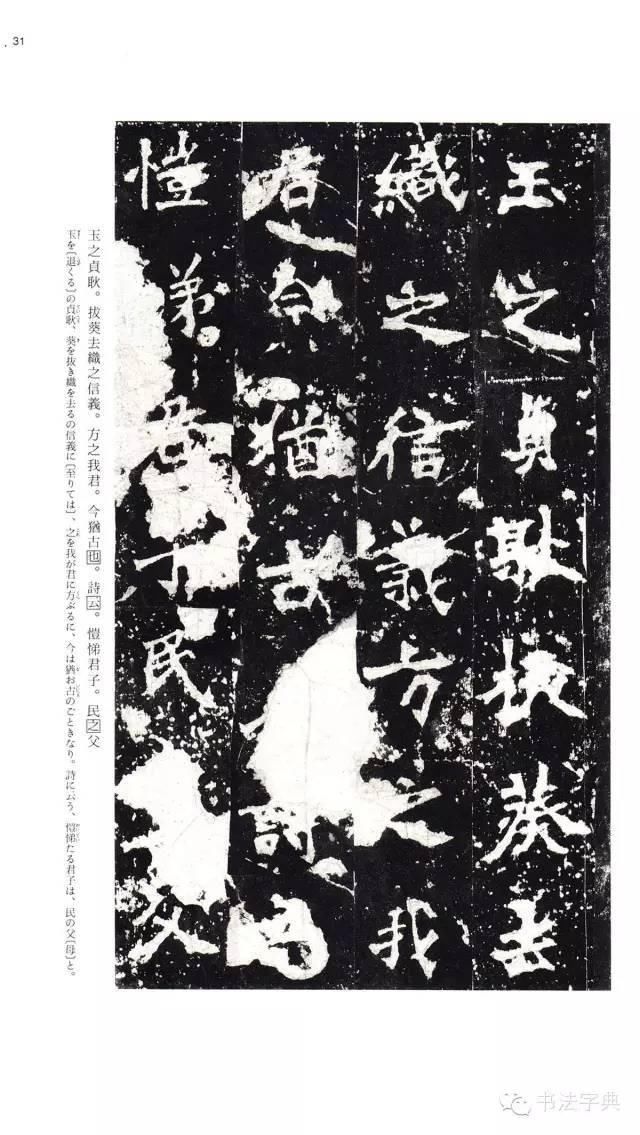 31
玉之貞耿拔葵去
織之信義方之我
君今猶古詩云
愷悌君子民父
玉之貞耿。拔葵去織之信義。方之我君。今猶古也。詩云。愷悌君子。民之父
玉を〔退くる〕の貞耿、葵を抜き織を去るの信義に〔至りては〕、之を我が君に方ぶるに、今は猶お古のごときなり。詩に云う、愷悌たる君子は、民の父〔母〕と。
书法字典